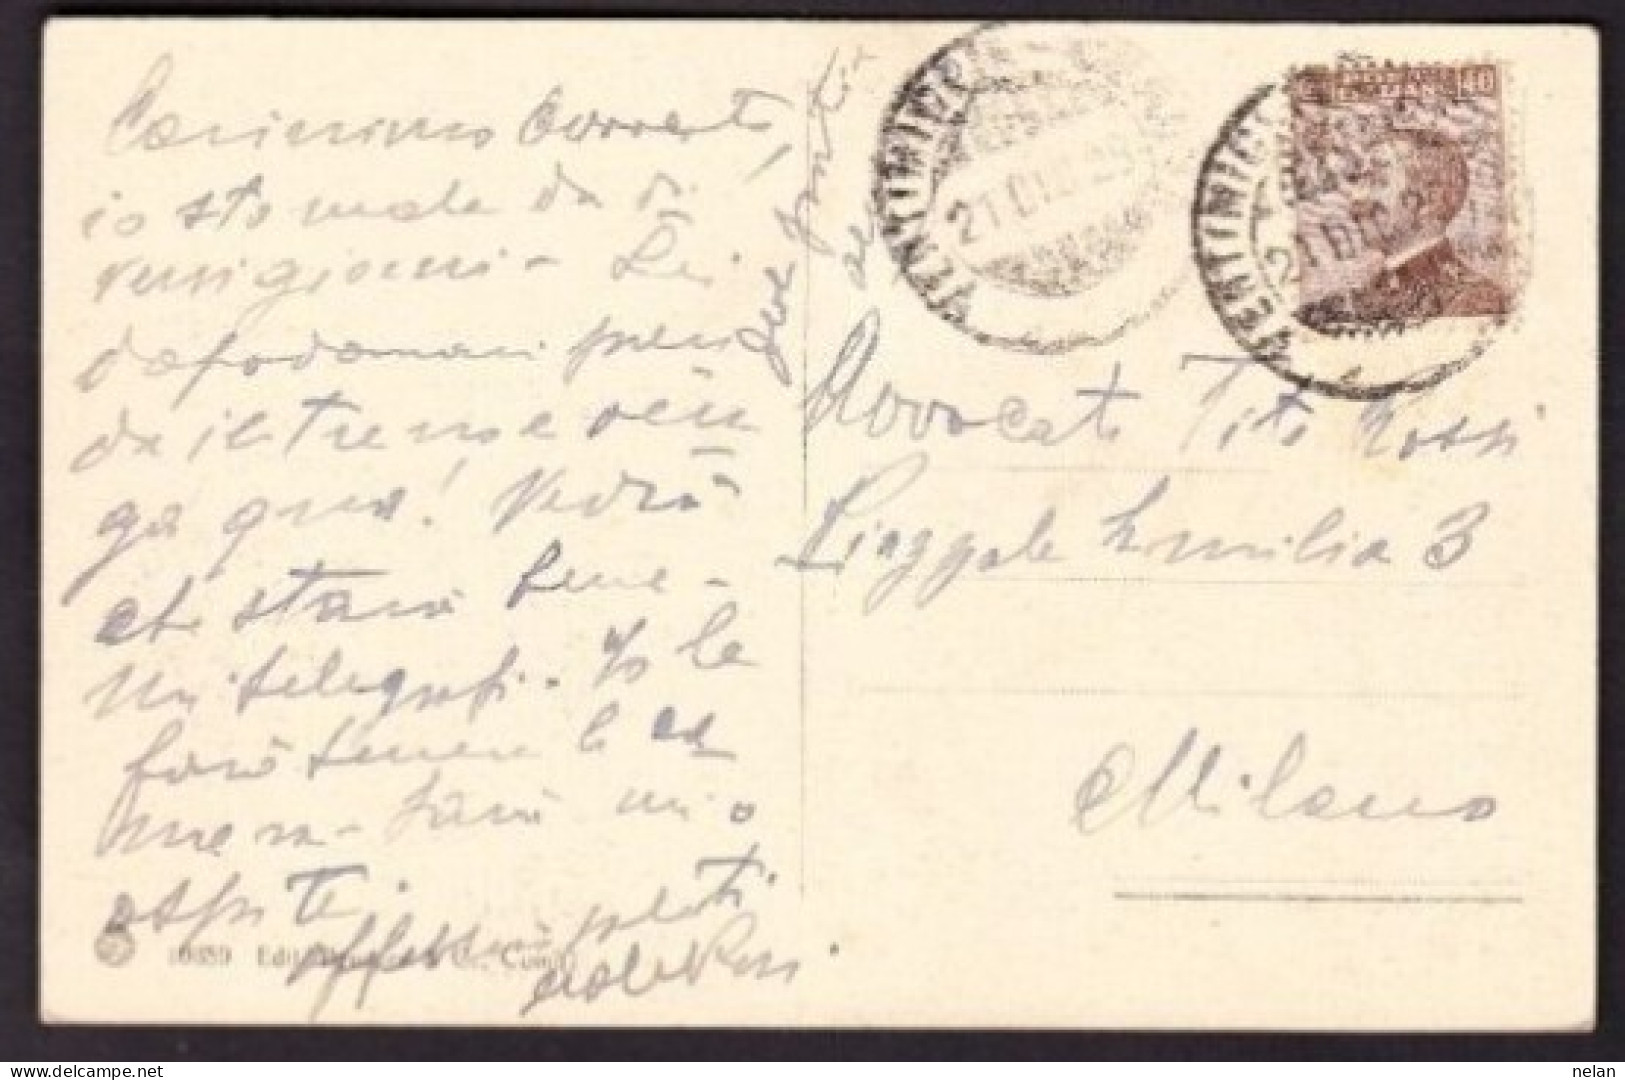 Carissimo Avvocato,
io sto male da di
versi giorni - Lei
dopodomani pren
da il treno e ven
ga qua! Vedrà
che starà bene -
Mi telegrafi. Io le
farò tenere la ca
mera - Sarà mio
ospite.
Affettuosi saluti
VENTIMIGLIA
21 DIC 29
VENTIMIGLIA
21 DIC 2
40
Avvocato Tito Rossi
Piazzale Emilia 3
Milano
10859 Edit
nelan
delcampe.net